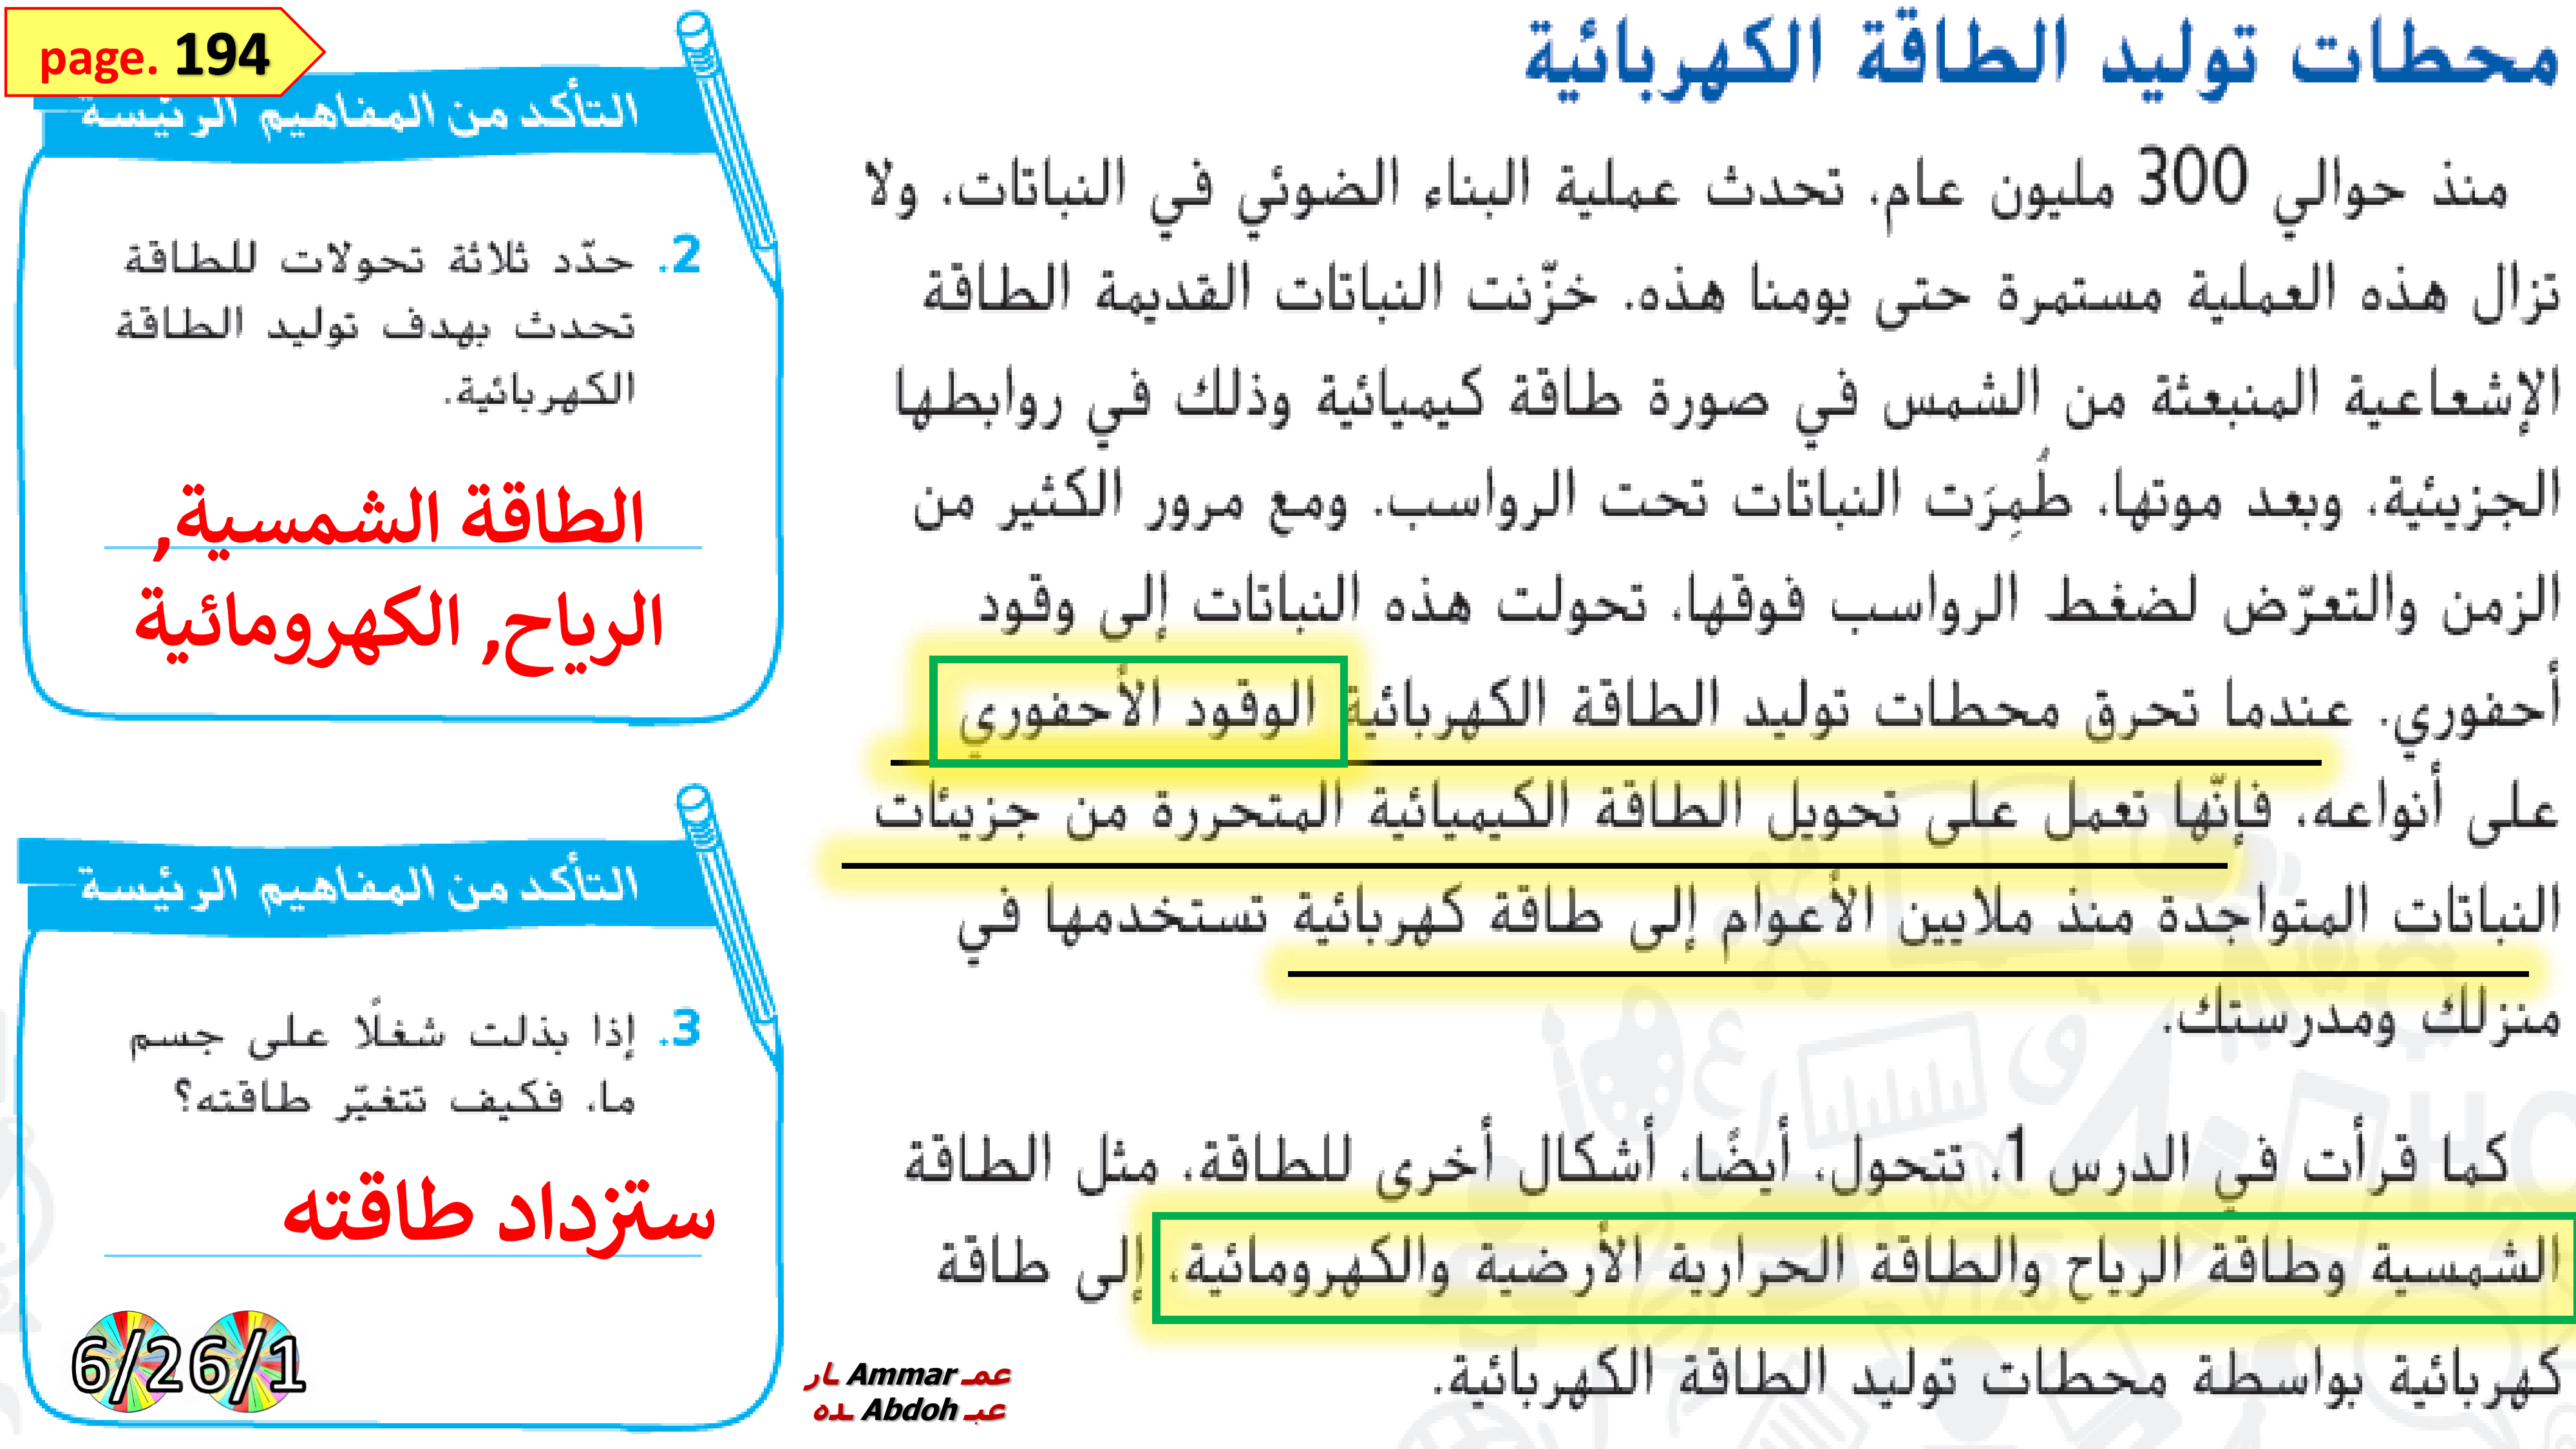 محطات توليد الطاقة الكهربائية
منذ حوالي 300 مليون عام، تحدث عملية البناء الضوئي في النباتات، ولا
تزال هذه العملية مستمرة حتى يومنا هذه. خزّنت النباتات القديمة الطاقة
الإشعاعية المنبعثة من الشمس في صورة طاقة كيميائية وذلك في روابطها
الجزيئية، وبعد موتها، طُمِرَت النباتات تحت الرواسب. ومع مرور الكثير من
الزمن والتعرّض لضغط الرواسب فوقها، تحولت هذه النباتات إلى وقود
أحفوري. عندما تحرق محطات توليد الطاقة الكهربائية الوقود الأحفوري
على أنواعه، فإنّها تعمل على تحويل الطاقة الكيميائية المتحررة من جزيئات
النباتات المتواجدة منذ ملايين الأعوام إلى طاقة كهربائية تستخدمها في
منزلك ومدرستك.
كما قرأت في الدرس 1، تتحول، أيضًا، أشكال أخرى للطاقة، مثل الطاقة
الشمسية وطاقة الرياح والطاقة الحرارية الأرضية والكهرومائية، إلى طاقة
كهربائية بواسطة محطات توليد الطاقة الكهربائية.
page. 194
التأكد من المفاهيم الرئيسة
2. حدّد ثلاثة تحولات للطاقة
تحدث بهدف توليد الطاقة
الكهربائية.
الطاقة الشمسية,
الرياح, الكهرومائية
التأكد من المفاهيم الرئيسة
3. إذا بذلت شغلًا على جسم
ما، فكيف تتغيّر طاقته؟
ستزداد طاقته
6/2 6/1
عمـ Ammar ـار
عبـ Abdoh ـده